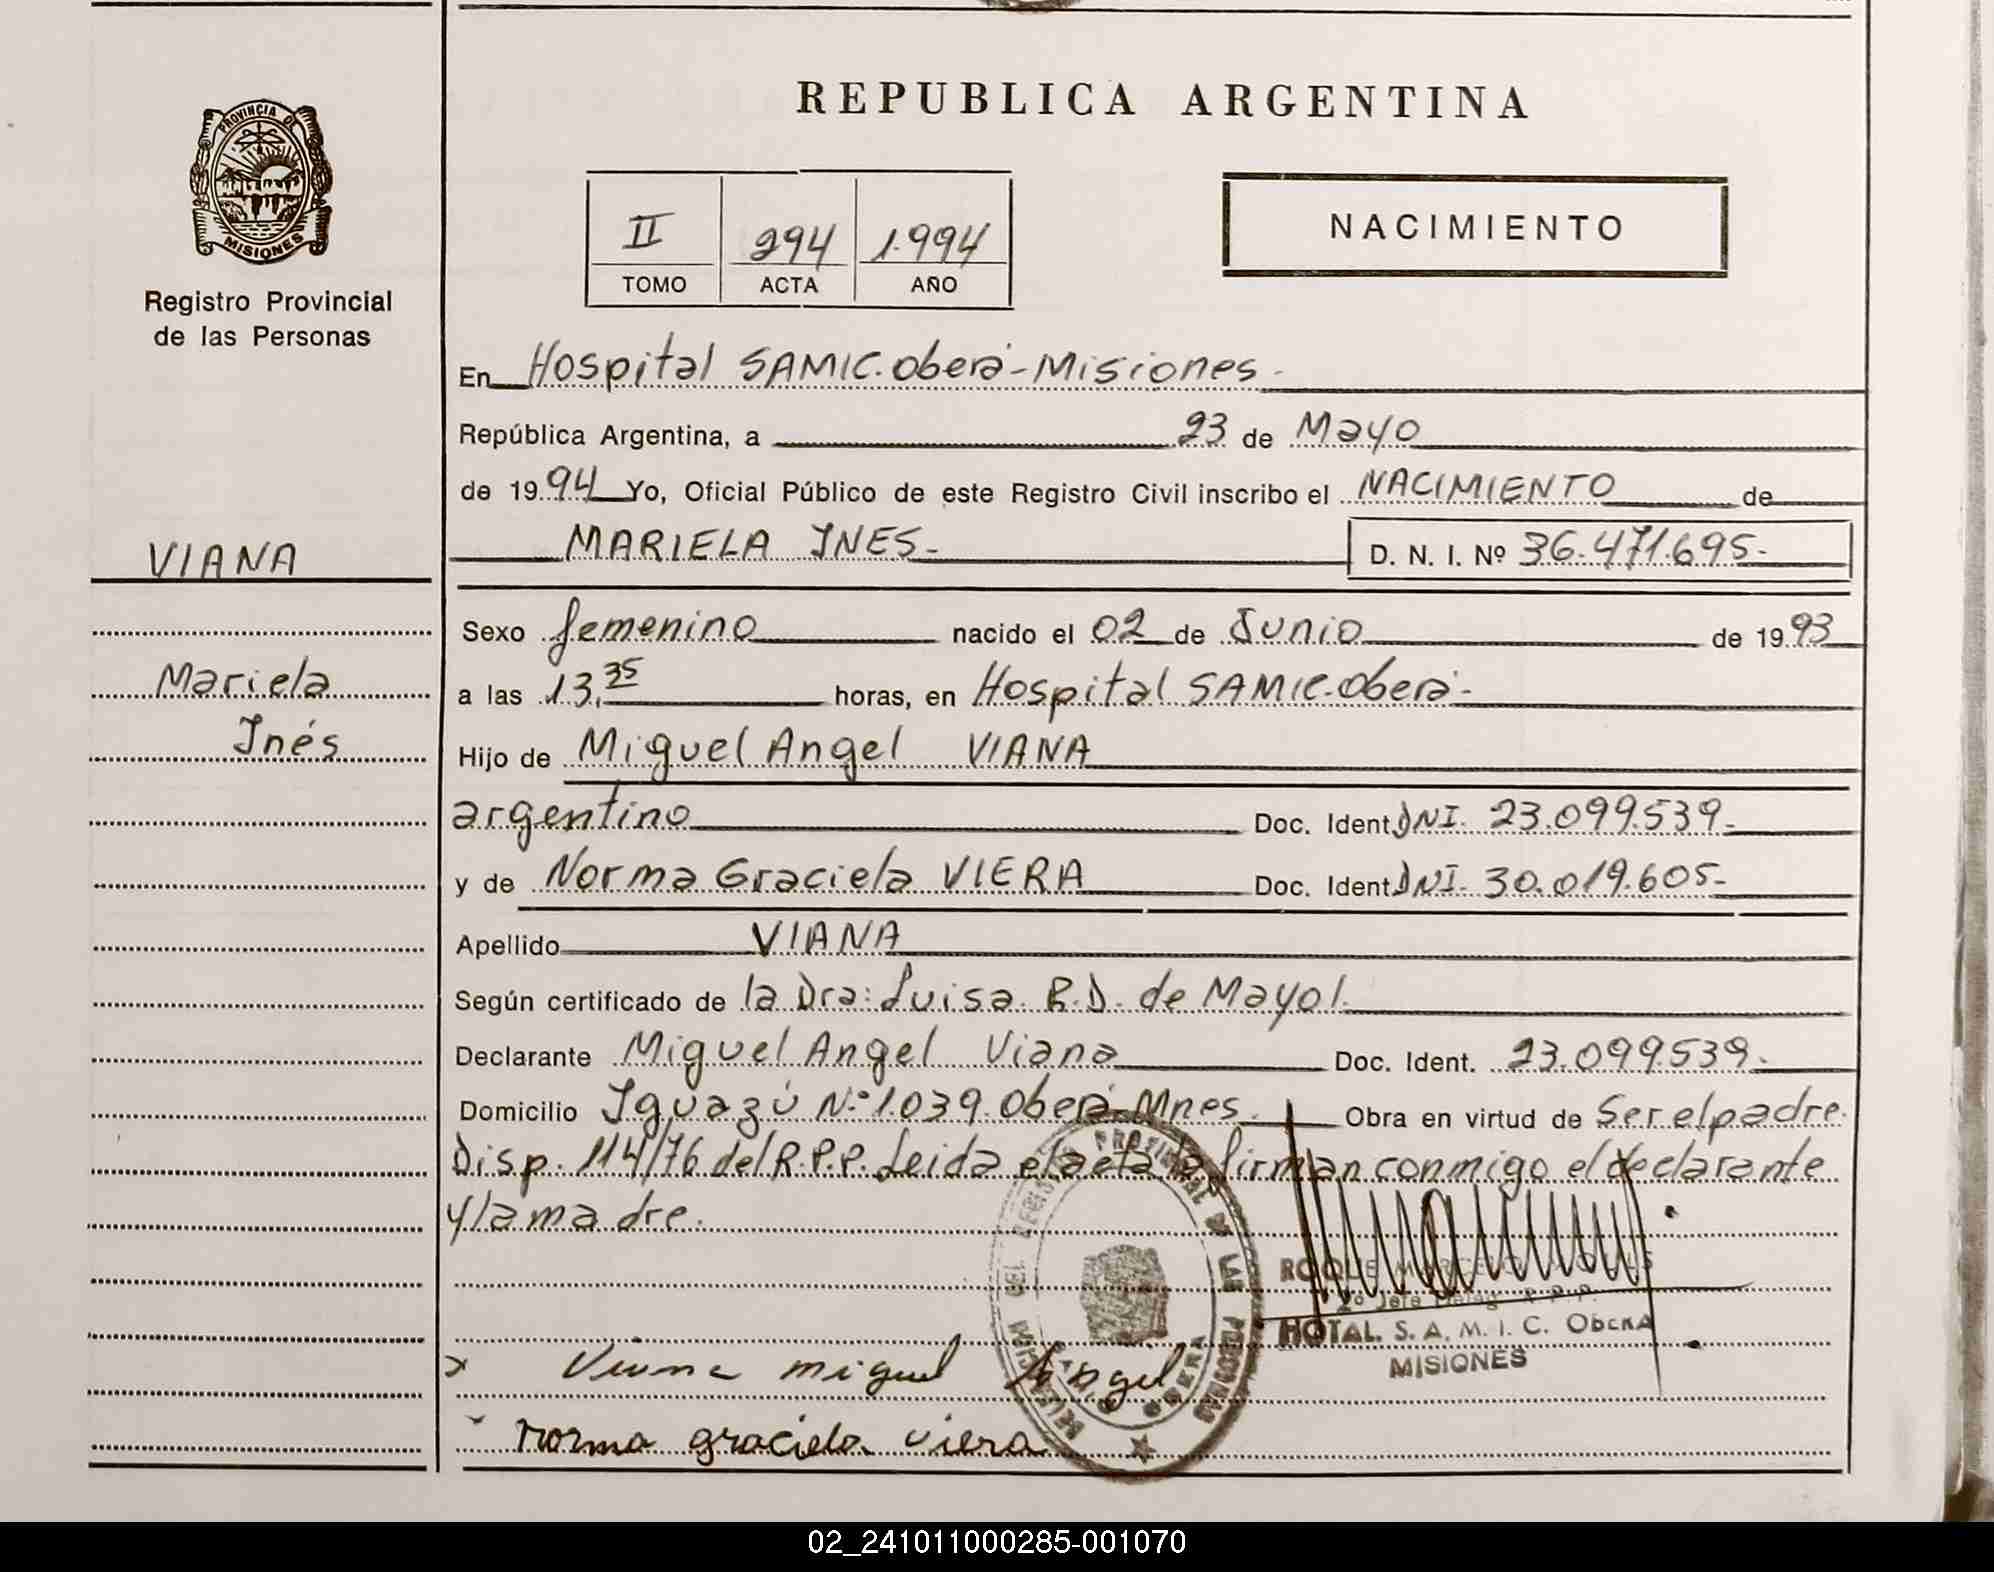 REPUBLICA ARGENTINA
PROVINCIA DE
MISIONES
Registro Provincial
de las Personas
II 294 1.994
TOMO ACTA AÑO
NACIMIENTO
En Hospital SAMIC. Oberá - Misiones -
República Argentina, a 23 de Mayo
de 1994 Yo, Oficial Público de este Registro Civil inscribo el NACIMIENTO de
VIANA
MARIELA INES - D. N. I. Nº 36.471.695-
Sexo femenino nacido el 02 de Junio de 1993
Mariela
a las 13,35 horas, en Hospital SAMIC. Oberá -
Inés
Hijo de Miguel Angel VIANA
argentino Doc. Ident. DNI. 23.099.539-
y de Norma Graciela VIERA Doc. Ident. DNI. 30.019.605-
Apellido VIANA
Según certificado de la Dra: Luisa. R.D. de Mayol.
Declarante Miguel Angel Viana Doc. Ident. 23.099.539.
Domicilio Iguazú N.º 1.039. Oberá - Mnes. Obra en virtud de Ser el padre.
Disp. 114/76 del R.P.P. Leida el acta la firman conmigo el declarante
y la madre.
ROQUE
2º Jefe Deleg. R. P. P.
HOTAL. S. A. M. I. C. OBERA
MISIONES
PROVINCIAL DE LAS PERSONAS
OBERA
x Viana miguel Angel
Norma graciela viera
02_241011000285-001070